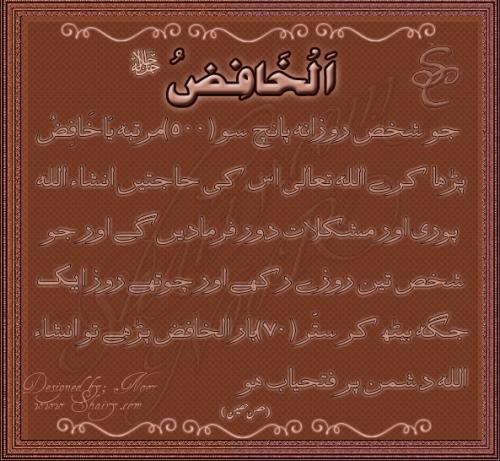 اَلْخَافِضُ جل جلالہ
جو شخص روزانہ پانچ سو (٥٠٠) مرتبہ یَاخَافِضُ
پڑھا کرے اللہ تعالی اس کی حاجتیں انشاء اللہ
پوری اور مشکلات دور فرمادیں گے اور جو
شخص تین روزے رکھے اور چوتھے روز ایک
جگہ بیٹھ کر ستّر (٧٠) بار الخافض پڑھے تو انشاء
اللہ دشمن پر فتحیاب ہو
(حصن حصین)
Designed by: Noor
www.Shairy.com